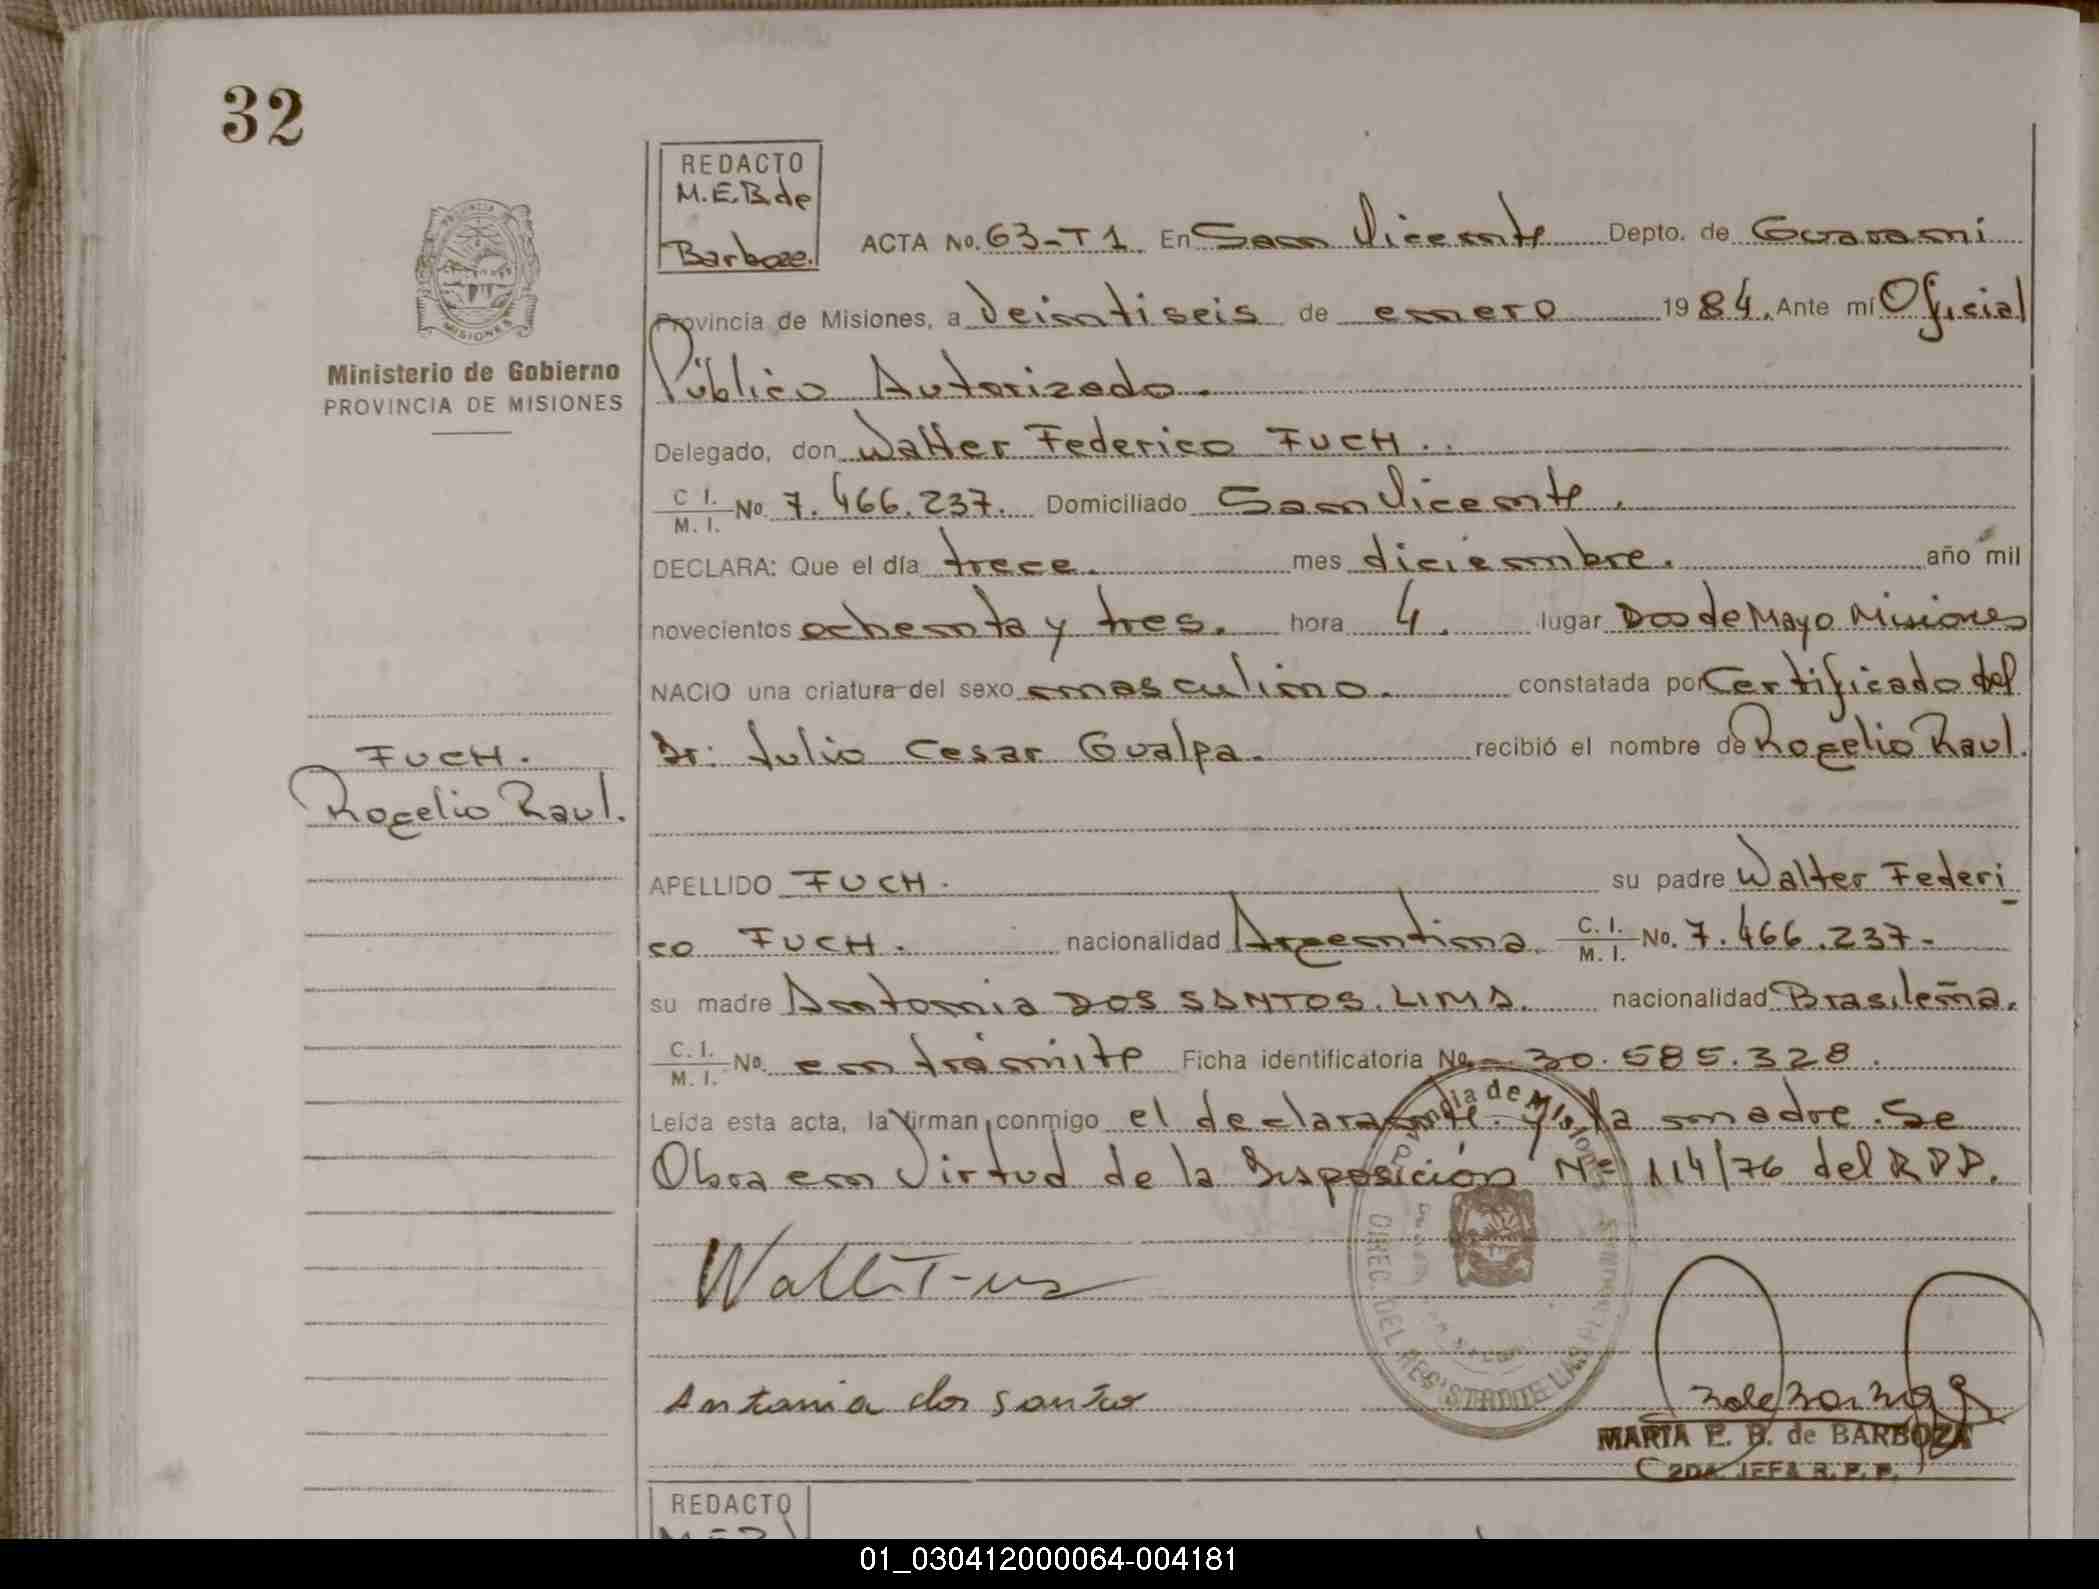 32
REDACTO
M.E.B. de
Barboza.
ACTA No. 63-T1 En San Vicente Depto. de Guarani
Provincia de Misiones, a Veintiseis de enero 1984. Ante mí Oficial
Público Autorizado.
Ministerio de Gobierno
PROVINCIA DE MISIONES
Delegado, don Walter Federico FUCH..
C I. / M. I. No. 7.466.237. Domiciliado San Vicente.
DECLARA: Que el día trece. mes diciembre. año mil
novecientos ochenta y tres. hora 4. lugar Dos de Mayo Misiones
NACIO una criatura del sexo masculino. constatada por Certificado del
Dr: Julio Cesar Gualpa. recibió el nombre de Rogelio Raul.
FUCH.
Rogelio Raul.
APELLIDO FUCH. su padre Walter Federi
co FUCH. nacionalidad Argentina. C. I. / M. I. No. 7.466.237-
su madre Antonia DOS SANTOS. LIMA. nacionalidad Brasileña.
C. I. / M. I. No. en trámite Ficha identificatoria No. 30.585.328.
Leída esta acta, la firman conmigo el declarante. y la madre. Se
Obra en Virtud de la Disposición Nº 114/76 del R.P.P.
Provincia de Misiones
DIREC. DEL REGIST
MISIONES
Antonia dos santos
MARIA E. B. de BARBOZA
2DA. JEFA R. P. P.
REDACTO
01_030412000064-004181